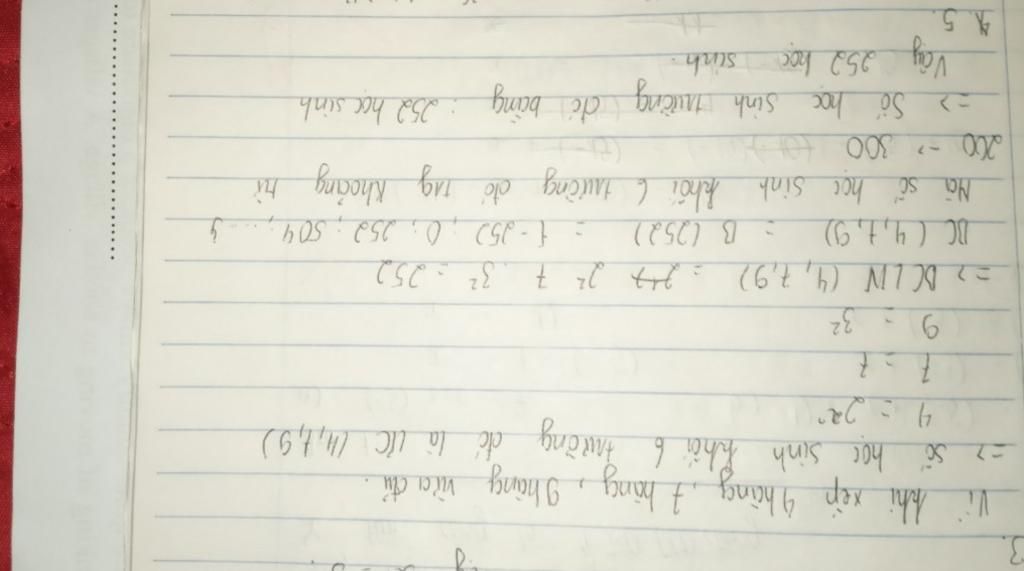 3.
Vì khi xếp 4 hàng, 7 hàng, 9 hàng vừa đủ.
=> số học sinh khối 6 trường đó là ƯC (4,7,9)
4 = 2²
7 = 7
9 = 3²
=> BCLNN (4, 7, 9) = 2² 7 3² = 252
BC (4, 7, 9) = B (252) = {-252; 0; 252; 504; ...}
Mà số học sinh khối 6 trường đó trg khoảng từ
200 -> 300
=> Số học sinh trường đó bằng : 252 học sinh
Vậy 252 học sinh.
4. 5.